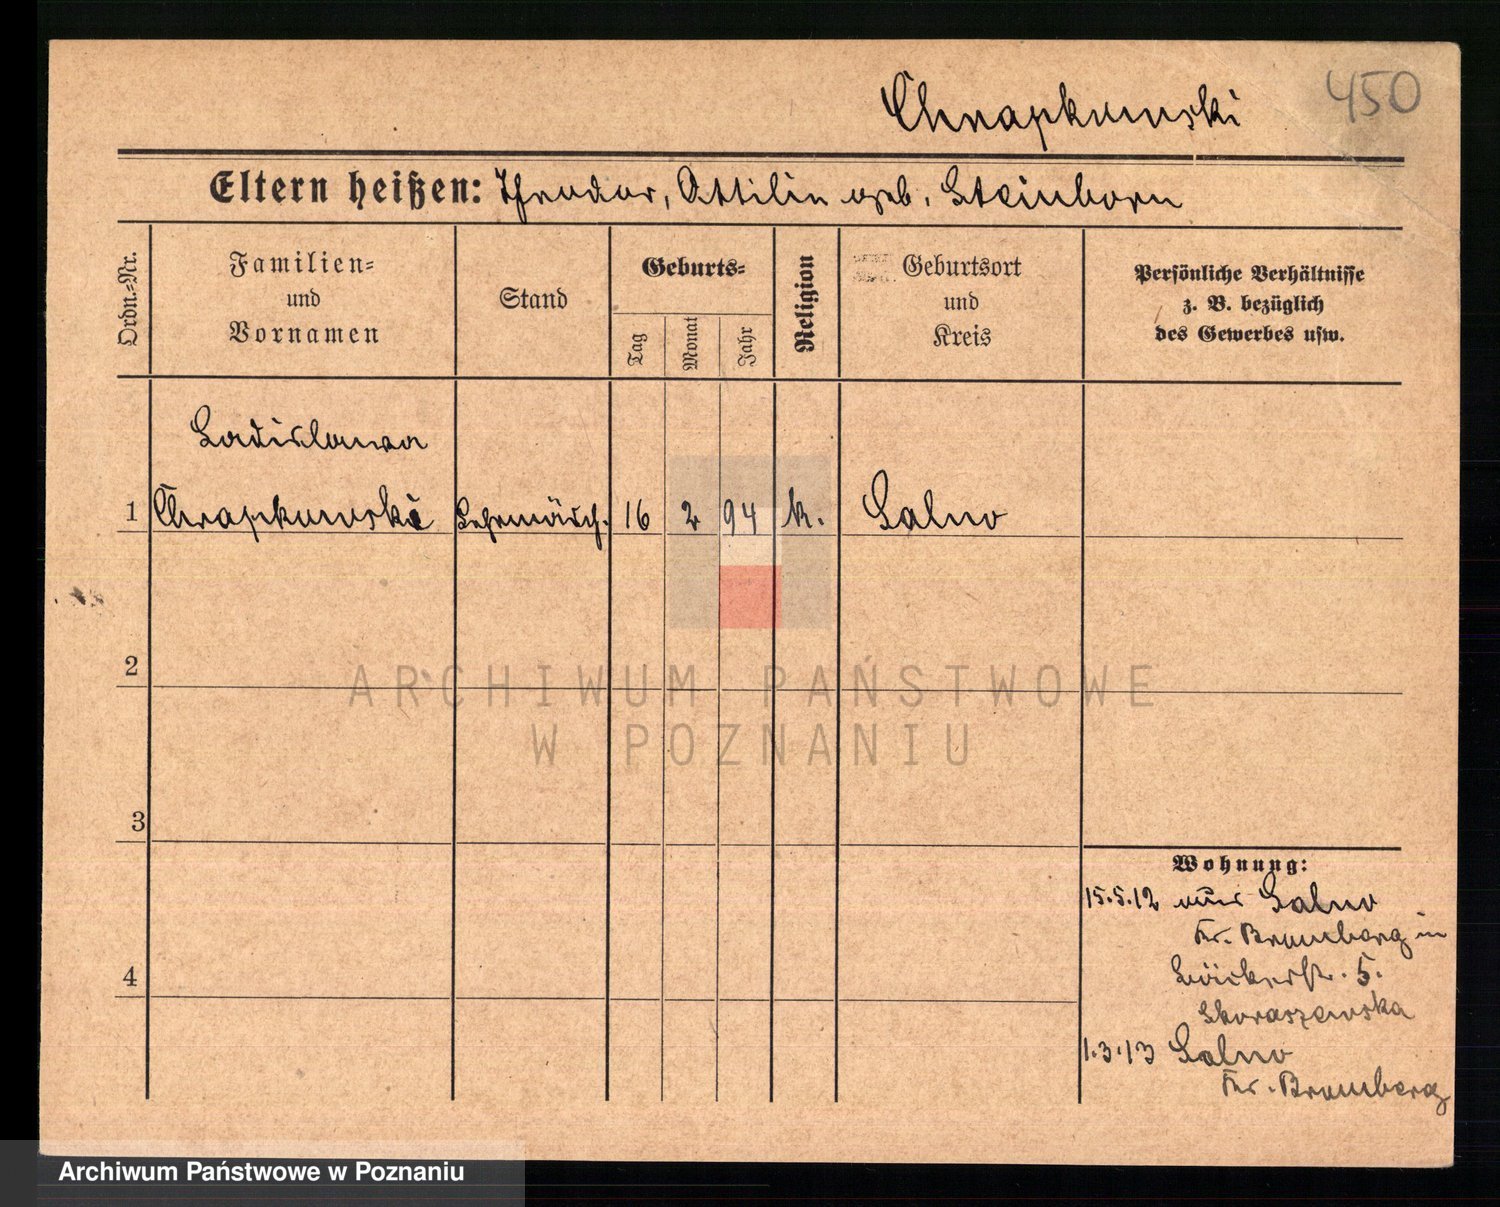 450
Chrapkowski
Eltern heißen: Theodor, Ottilie geb. Steinborn
Ordn.-Nr.
Familien-
und
Vornamen
Stand
Geburts-
Tag
Monat
Jahr
Religion
Geburtsort
und
Kreis
Persönliche Verhältnisse
z. B. bezüglich
des Gewerbes usw.
Ladislawa
1 Chrapkowski Lehrmädch. 16 2 94 k. Salno
2
ARCHIWUM PAŃSTWOWE
W POZNANIU
3
4
Wohnung:
15.5.12 aus Salno
Kr. Bromberg in
Bäckerstr. 5.
Skoraszewska
1.3.13 Salno
Kr. Bromberg
Archiwum Państwowe w Poznaniu